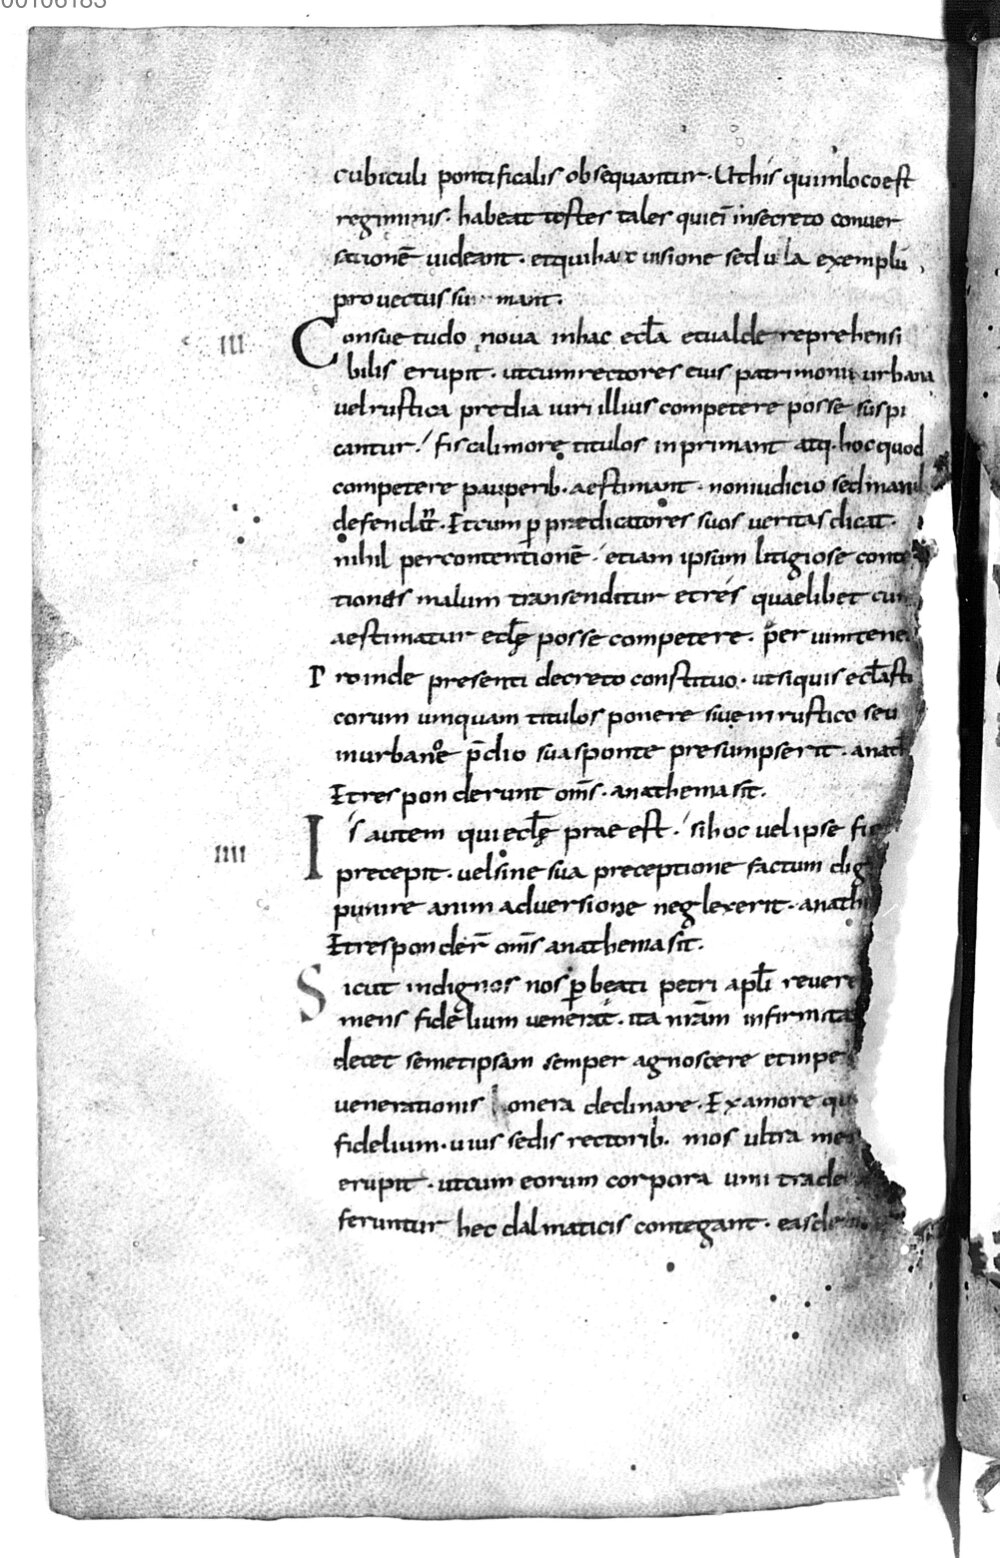 00106183
cubiculi pontificalis obsequantur. Ut his qui in loco est
regiminis. habeat testes tales qui eī in secreto conuer
sationē uideant. et qui hac uisione sedula exemplū
prouectus su mant.
III Consuetudo noua in hac eccła et ualde reprehensi
bilis erupit. ut cum rectores eius patrimonii urbana
uel rustica predia iuri illius competere posse suspi
cantur. fiscali more titulos inprimant atq. hoc quod
competere pauperib. aestimant. non iudicio sed
defendat̄. Et cum p̱ praedicatores suos ueritas dicat.
nihil per contentionē. etiam ipsum litigiose
tiones malum transenditur et res quaelibet
aestimatur ecłę posse competere. per uim
Proinde presenti decreto constituo. ut siquis
corum umquam titulos ponere siue in rustico seu
in urbano p̄dio sua sponte presumpserit.
Et responderunt om̄s. anathema sit.
IIII Is autem qui ecłę prae est. si hoc uel ipse
precepit. uel sine sua preceptione factum
punire animaduersione neglexerit.
Et responder̄ om̄s anathema sit.
Sicut indignos nos p̱ beati petri apłi
mens fidelium uenerat. ita nr̄am
decet semetipsam semper agnoscere et
uenerationis honera declinare. Ex amore
fidelium. uius sedis rectorib. mos ultra
erupit. ut cum eorum corpora umi
feruntur hec dalmaticis contegant.